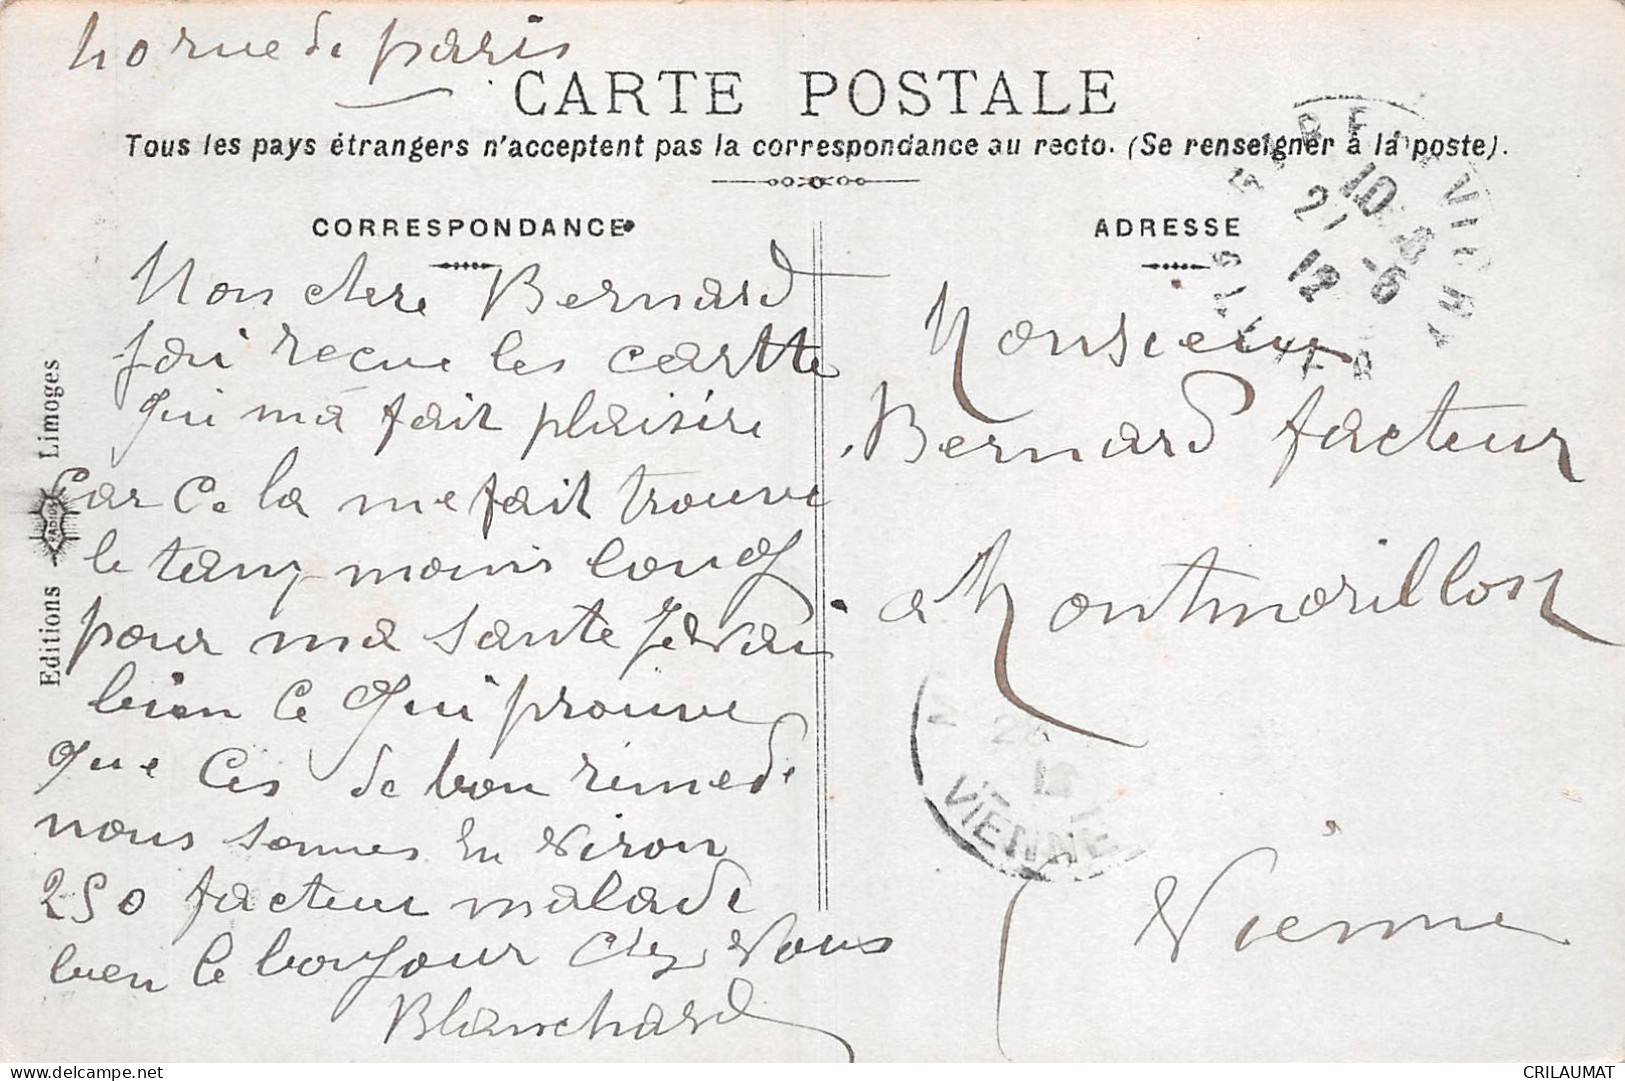 40 rue de paris
CARTE POSTALE
Tous les pays étrangers n'acceptent pas la correspondance au recto. (Se renseigner à la poste).
CORRESPONDANCE
Mon chere Bernard
jai recue les cartte
qui ma fait plaisire
Car ce la me fait trouve
le tanp moins long
pour ma sante je vai
bien ce qui prouve
que ces de bon rimede
nous sommes en viron
250 facteur malade
bien le bonjour chez vous
Blanchard
ADRESSE
Monsieur
Bernard facteur
a Montmorillon
Vienne
10
27 -5
12
VIENNE
Editions RADIOS Limoges
CRILAUMAT